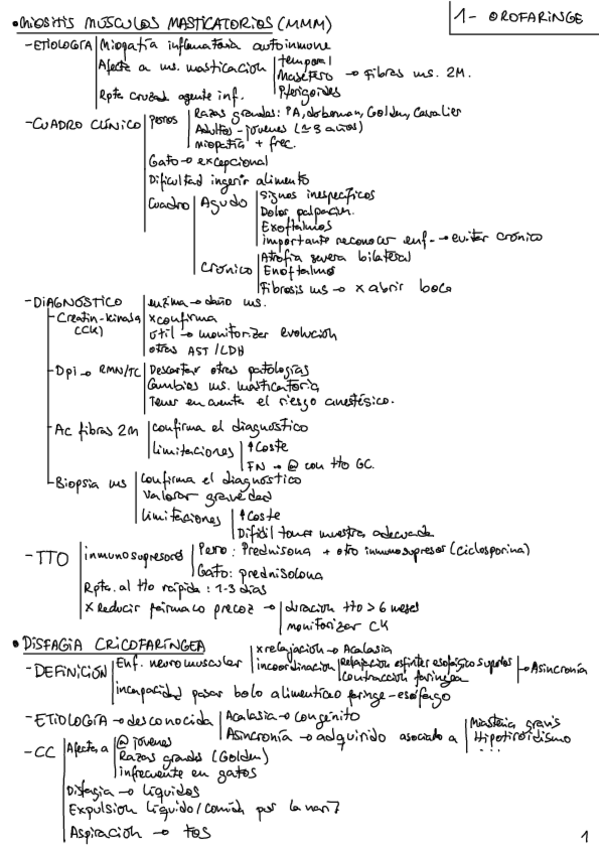 1- OROFARINGE
• MIOSITIS MUSCULOS MASTICATORIOS (MMM)
- ETIOLOGÍA Miopatía inflamatoria autoinmune
Afecta a ms. masticación temporal
Masetero → Fibras ms. 2M.
Pterigoides
Rpta cruzada agente inf.
- CUADRO CLÍNICO perros Razas grandes: PA, doberman, Golden, Cavalier
Adultos - jóvenes (≈3 años)
miopatía + frec.
Gato → excepcional
Dificultad ingerir alimento
Cuadro Agudo Signos inespecíficos
Dolor palpación.
Exoftalmos
importante reconocer enf. → evitar crónico
Crónico Atrofia severa bilateral
Enoftalmos
Fibrosis ms → x abrir boca
- DIAGNÓSTICO
Creatin-kinasa (CK) enzima → daño ms.
x confirma
útil → monitorizar evolución
otras AST/LDH
Dpi → RMN/TC Descartar otras patologías
Cambios ms. masticatoria
Tener en cuenta el riesgo anestésico.
Ac fibras 2M confirma el diagnóstico
limitaciones ↑Coste
FN → @ con tto GC.
Biopsia ms confirma el diagnóstico
Valorar gravedad
limitaciones ↑Coste
Difícil tomar muestra adecuada
- TTO inmunosupresores Perro: Prednisona + otro inmunosupresor (Ciclosporina)
Gato: prednisolona
Rpta. al tto rápida: 1-3 días
x Reducir fármaco precoz → duración tto > 6 meses
monitorizar CK
• DISFAGIA CRICOFARÍNGEA
- DEFINICIÓN Enf. neuromuscular x relajación → Acalasia
incoordinación relajación esfínter esofágico superior
contracción faríngea → Asincronía
incapacidad pasar bolo alimenticio faringe-esófago
- ETIOLOGÍA → desconocida Acalasia → congénito
Asincronía → adquirido asociado a Miastenia gravis
Hipotiroidismo
...
- CC Afecta a @ jóvenes
Razas grandes (Golden)
infrecuente en gatos
Disfagia → líquidos
Expulsión líquido/comida por la nariz
Aspiración → tos
1